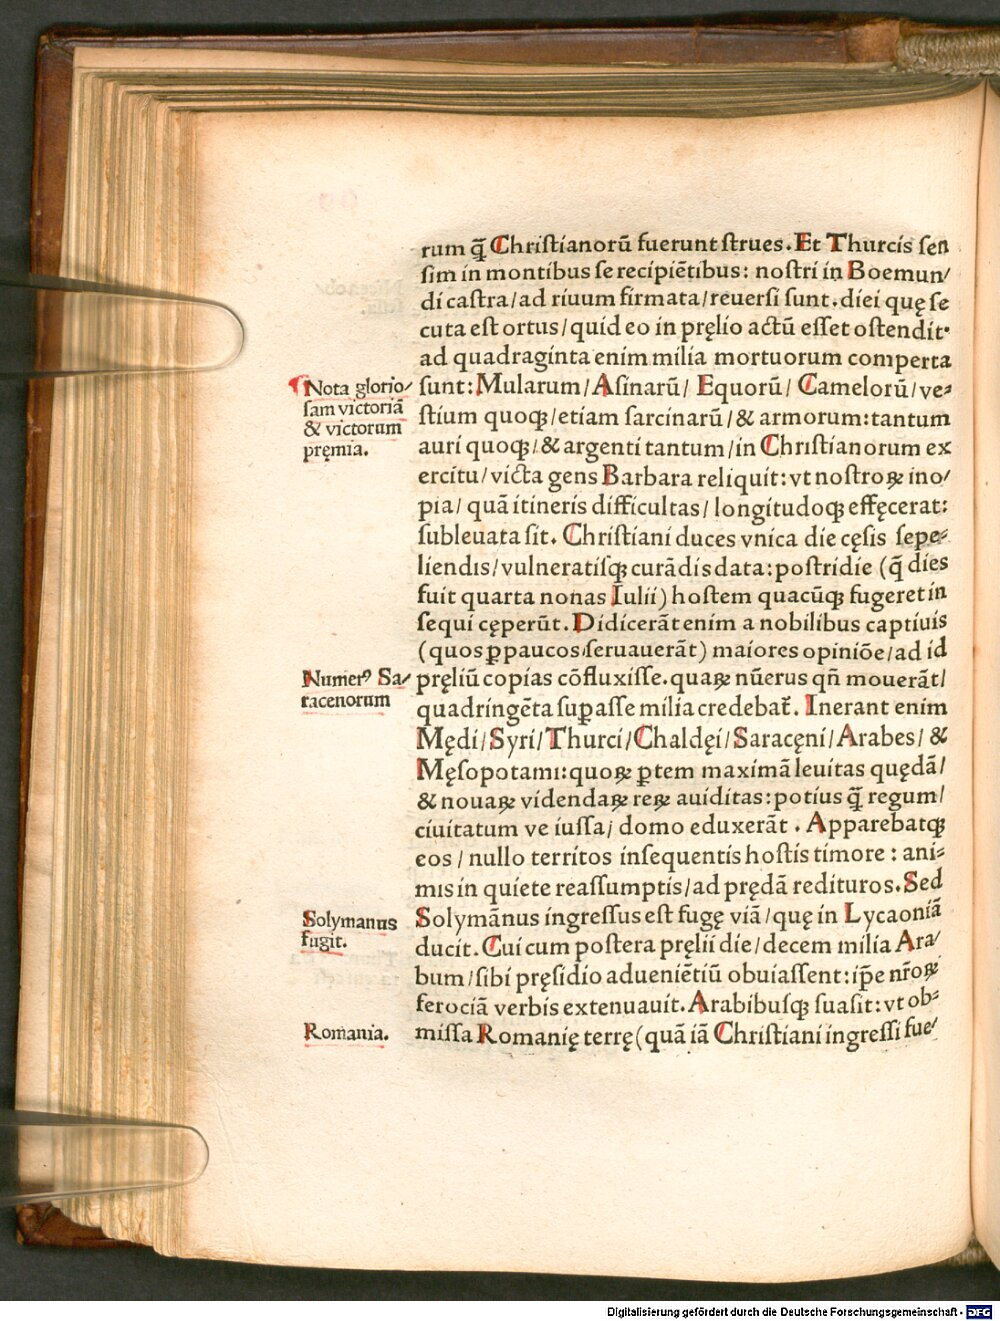 rum q̃ Chriſtianorũ fuerunt ſtrues. Et Thurcis ſen
ſim in montibus ſe recipiẽtibus: noſtri in Boemun/
di caſtra/ad riuum firmata/reuerſi ſunt. diei quę ſe
cuta eſt ortus/quid eo in pręlio actũ eſſet oſtendit.
ad quadraginta enim milia mortuorum comperta
ſunt: Mularum/Aſinarũ/ Equorũ/ Camelorũ/ve⸗
ſtium quoqꝫ/etiam ſarcinarũ/& armorum:tantum
auri quoqꝫ/& argenti tantum/in Chriſtianorum ex
ercitu/victa gens Barbara reliquit: vt noſtroꝝ ino/
pia/quã itineris difficultas/longitudoqꝫ effęcerat:
ſubleuata ſit. Chriſtiani duces vnica die cęſis ſepe⸗
liendis/vulneratiſqꝫ curãdis data:poſtridie (q̃ dies
fuit quarta nonas Iulii) hoſtem quacũqꝫ fugeret in
ſequi cęperũt. Didicerãt enim a nobilibus captiuis
(quos ꝑpaucos ſeruauerãt) maiores opiniõe/ad id
pręliũ copias cõfluxiſſe. quaꝝ nũerus qñ mouerãt/
quadringẽta ſuꝑaſſe milia credebat̃. Inerant enim
Mędi/Syri/Thurci/Chaldęi/Saracęni/Arabes/ &
Męſopotami: quoꝝ ꝑtem maximã leuitas quędã/
& nouaꝝ videndaꝝ reꝝ auiditas: potius q̃ regum/
ciuitatum ve iuſſa/ domo eduxerãt. Apparebatqꝫ
eos / nullo territos inſequentis hoſtis timore : ani⸗
mis in quiete reaſſumptis/ad prędã redituros. Sed
Solymãnus ingreſſus eſt fugę viã/quę in Lycaoniã
ducit. Cui cum poſtera pręlii die/decem milia Ara/
bum/ſibi pręſidio adueniẽtiũ obuiaſſent: ip̃e nr̃oꝝ
ferociã verbis extenuauit. Arabibuſqꝫ ſuaſit: vt ob⸗
miſſa Romanię terrę (quã iã Chriſtiani ingreſſi fue/
¶Nota glorio/
ſam victoriã
& victorum
pręmia.
Numerꝰ Sa/
racenorum
Solymanus
fugit.
Romania.
Digitalisierung gefördert durch die Deutsche Forschungsgemeinschaft - DFG